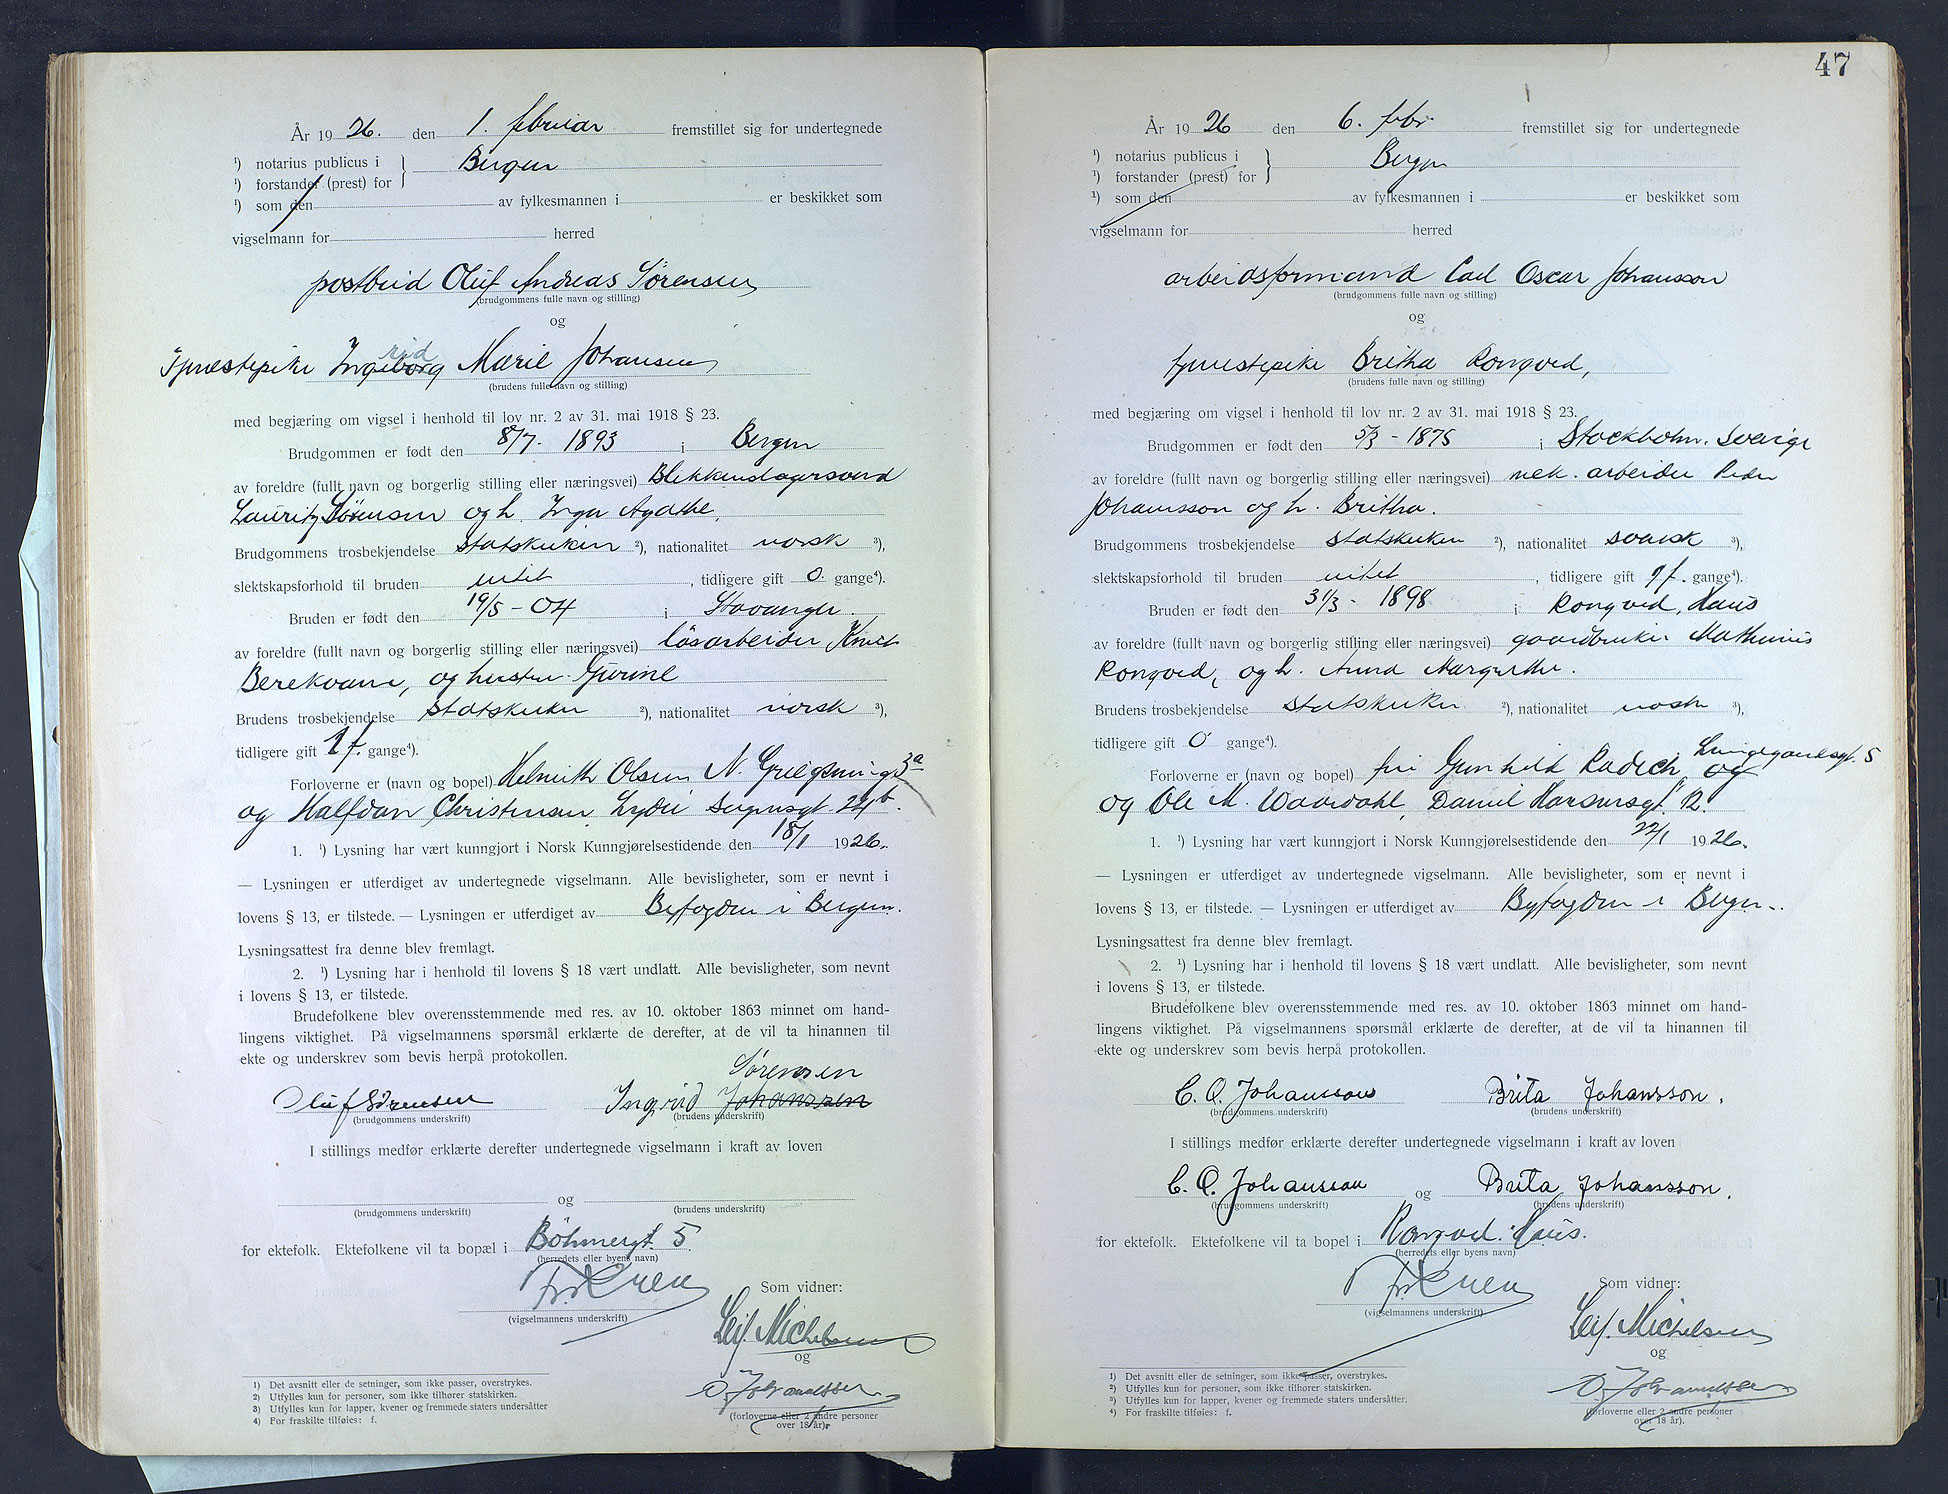 År 1926. den 1. februar fremstillet sig for undertegnede
¹) notarius publicus i } Bergen
¹) forstander (prest) for
¹) som den av fylkesmannen i er beskikket som
vigselmann for herred
postbud Oluf Andreas Sørensen
(brudgommens fulle navn og stilling)
og
rid
Tjenestepike Ingeborg Marie Johansen
(brudens fulle navn og stilling)
med begjæring om vigsel i henhold til lov nr. 2 av 31. mai 1918 § 23.
Brudgommen er født den 8/7. 1893 i Bergen
av foreldre (fullt navn og borgerlig stilling eller næringsvei) Blikkenslagersvend
Lauritz Sørensen og h. Inga Agathe.
Brudgommens trosbekjendelse statskirken ²), nationalitet norsk ³),
slektskapsforhold til bruden intet, tidligere gift 0 gange⁴).
Bruden er født den 19/5 - 04 i Stavanger.
av foreldre (fullt navn og borgerlig stilling eller næringsvei) løsarbeider Knut
Berekvam, og hustru Gurine
Brudens trosbekjendelse statskirken ²), nationalitet norsk ³),
tidligere gift 1 f. gange⁴).
Forloverne er (navn og bopel) Helmuth Olsen N. 3a
og Halfdan Christensen, Lyder Sagensgt. 24b.
1. ¹) Lysning har vært kunngjort i Norsk Kunngjørelsestidende den 18/1 1926.
— Lysningen er utferdiget av undertegnede vigselmann. Alle bevisligheter, som er nevnt i
lovens § 13, er tilstede. — Lysningen er utferdiget av Byfogden i Bergen.
Lysningsattest fra denne blev fremlagt.
2. ¹) Lysning har i henhold til lovens § 18 vært undlatt. Alle bevisligheter, som nevnt
i lovens § 13, er tilstede.
Brudefolkene blev overensstemmende med res. av 10. oktober 1863 minnet om hand-
lingens viktighet. På vigselmannens spørsmål erklærte de derefter, at de vil ta hinannen til
ekte og underskrev som bevis herpå protokollen.
Sørensen
Oluf Sørensen Ingrid Johanssen
(brudgommens underskrift) (brudens underskrift)
I stillings medfør erklærte derefter undertegnede vigselmann i kraft av loven
og
(brudgommens underskrift) (brudens underskrift)
for ektefolk. Ektefolkene vil ta bopæl i Böhmergt. 5.
(herredets eller byens navn)
Som vidner:
(vigselmannens underskrift)
Leif. Michelsen
og
O. Johannessen
(forloverne eller 2 andre personer
over 18 år).
1) Det avsnitt eller de setninger, som ikke passer, overstrykes.
2) Utfylles kun for personer, som ikke tilhører statskirken.
3) Utfylles kun for lapper, kvener og fremmede staters undersåtter
4) For fraskilte tilføies: f.
47
År 1926 den 6. febr. fremstillet sig for undertegnede
¹) notarius publicus i } Bergen
¹) forstander (prest) for
¹) som den av fylkesmannen i er beskikket som
vigselmann for herred
arbeidsformand Carl Oscar Johansson
(brudgommens fulle navn og stilling)
og
tjenestepike Britha Rongved,
(brudens fulle navn og stilling)
med begjæring om vigsel i henhold til lov nr. 2 av 31. mai 1918 § 23.
Brudgommen er født den 5/3 - 1875 i Stockholm. Sverige
av foreldre (fullt navn og borgerlig stilling eller næringsvei) mek. arbeider Peder
Johansson og h. Britha.
Brudgommens trosbekjendelse statskirken ²), nationalitet svensk ³),
slektskapsforhold til bruden intet, tidligere gift 1 f. gange⁴).
Bruden er født den 31/3 - 1898 i Rongved, Haus
av foreldre (fullt navn og borgerlig stilling eller næringsvei) gaardbruker Mathias
Rongved, og h. Anna Margrethe.
Brudens trosbekjendelse statskirken ²), nationalitet norsk ³),
tidligere gift 0 gange⁴).
Lungegaardsgt. 5
Forloverne er (navn og bopel) fru Gunhild Radich og
og Ole M. Daniel Hansensgt. 12.
1. ¹) Lysning har vært kunngjort i Norsk Kunngjørelsestidende den 22/1 1926.
— Lysningen er utferdiget av undertegnede vigselmann. Alle bevisligheter, som er nevnt i
lovens § 13, er tilstede. — Lysningen er utferdiget av Byfogden i Bergen.
Lysningsattest fra denne blev fremlagt.
2. ¹) Lysning har i henhold til lovens § 18 vært undlatt. Alle bevisligheter, som nevnt
i lovens § 13, er tilstede.
Brudefolkene blev overensstemmende med res. av 10. oktober 1863 minnet om hand-
lingens viktighet. På vigselmannens spørsmål erklærte de derefter, at de vil ta hinannen til
ekte og underskrev som bevis herpå protokollen.
C. O. Johansson Brita Johansson.
(brudgommens underskrift) (brudens underskrift)
I stillings medfør erklærte derefter undertegnede vigselmann i kraft av loven
C. O. Johansson og Brita Johansson.
(brudgommens underskrift) (brudens underskrift)
for ektefolk. Ektefolkene vil ta bopel i Rongved. Haus.
(herredets eller byens navn)
Som vidner:
(vigselmannens underskrift)
Leif. Michelsen
og
O. Johannessen
(forloverne eller 2 andre personer
over 18 år).
1) Det avsnitt eller de setninger, som ikke passer, overstrykes.
2) Utfylles kun for personer, som ikke tilhører statskirken.
3) Utfylles kun for lapper, kvener og fremmede staters undersåtter.
4) For fraskilte tilføies: f.